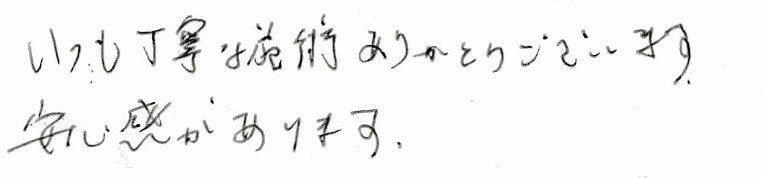 いつも丁寧な施術ありがとうございます。
安心感があります.